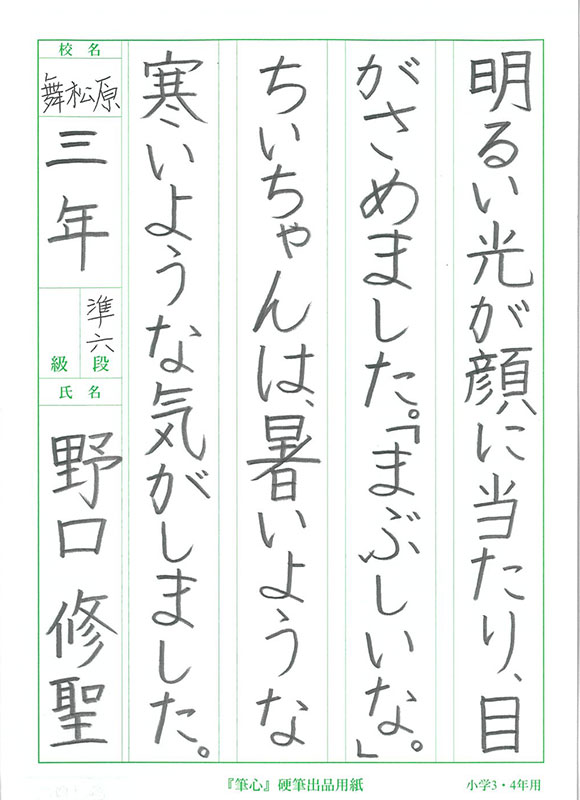 明るい光が顔に当たり、目
がさめました。「まぶしいな。」
ちいちゃんは、暑いような
寒いような気がしました。
校名
舞松原
三年
準六
段
級
氏名
野口修聖
『筆心』硬筆出品用紙
小学3・4年用